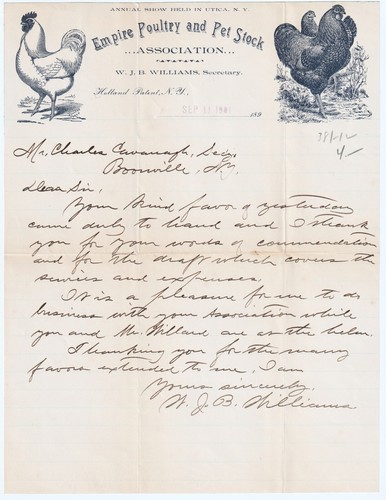 ANNUAL SHOW HELD IN UTICA, N. Y.
Empire Poultry and Pet Stock
...ASSOCIATION...
W. J. B. WILLIAMS, Secretary.
Holland Patent, N. Y.,
SEP 11 1901 189
Mr. Charles Cavanagh, Secy,
Boonville, N.Y.
Dear Sir,
Your kind favor of yesterday
came duly to hand and I thank
you for your words of commendation
and for the draft which covers the
service and expenses.
It is a pleasure for me to do
business with your Association while
you and Mr. Willard are at the helm.
Thanking you for the many
favors extended to me, I am
Yours sincerely,
W. J. B. Williams